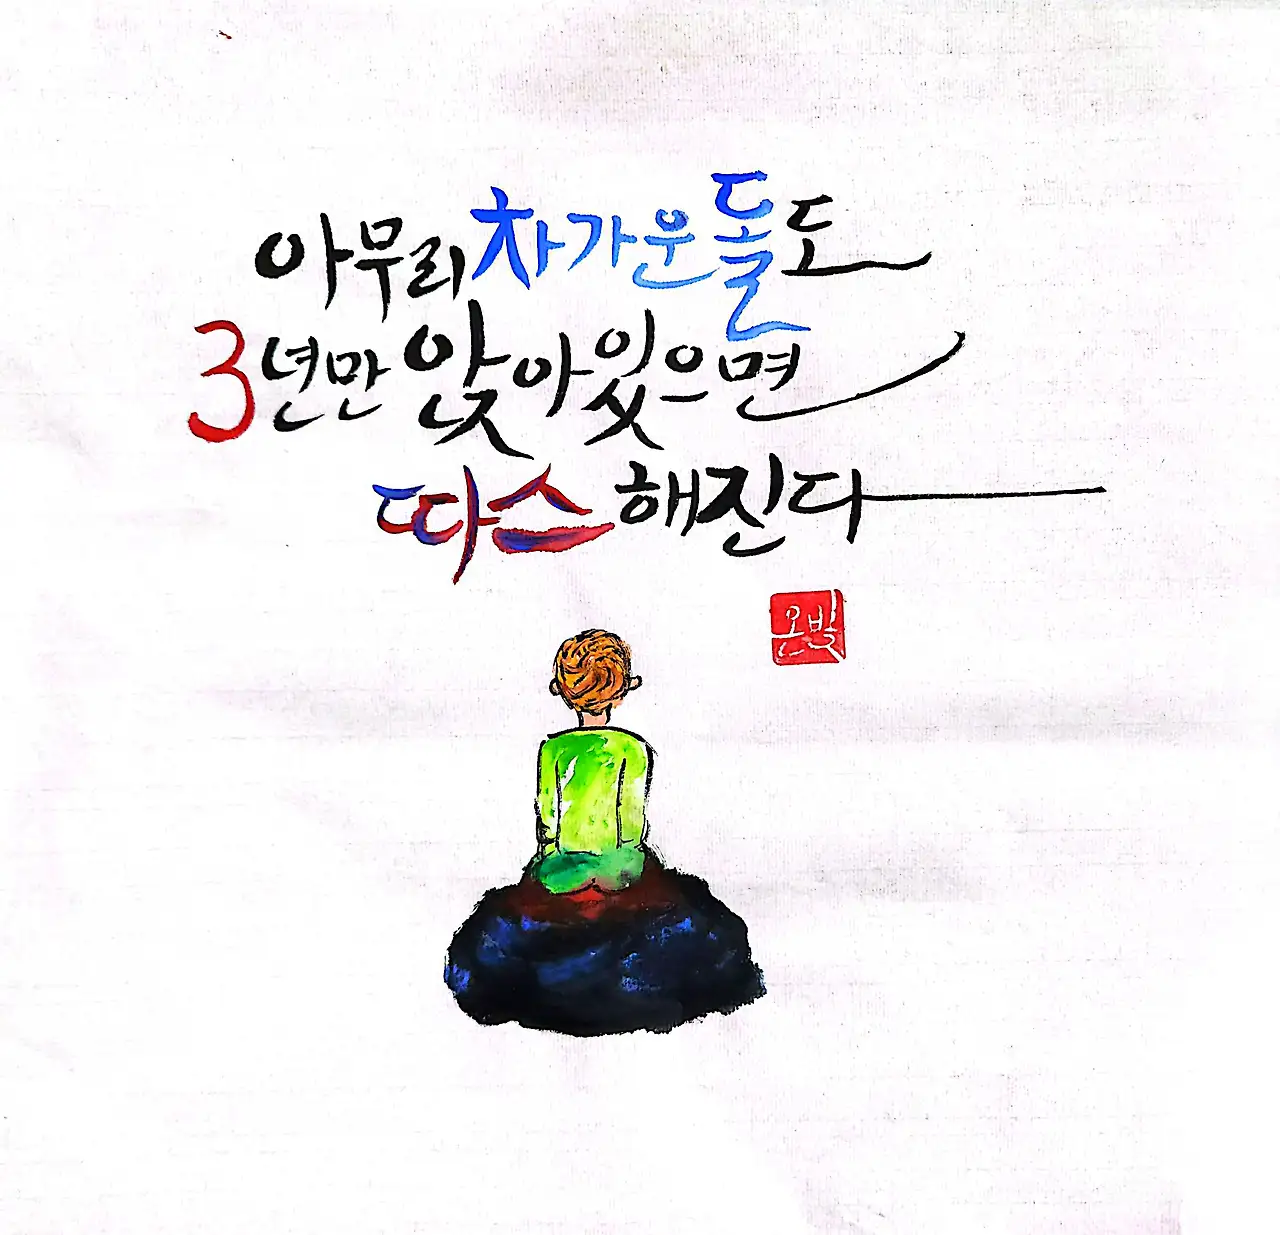 아무리 차가운 돌도
3년만 앉아 있으면
따스해진다
온빛